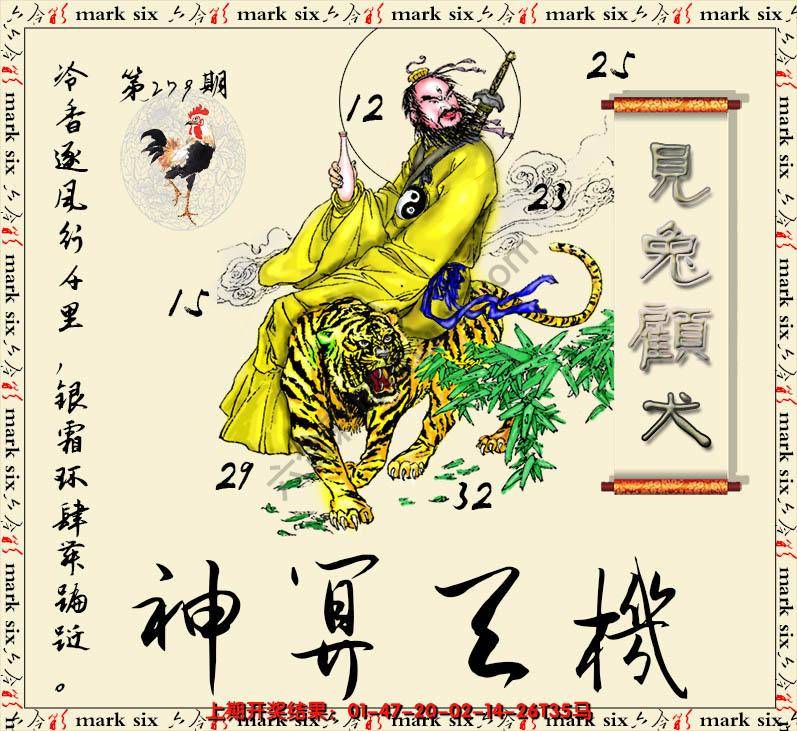 六合彩 mark six 六合彩 mark six 六合彩 mark six 六合彩 mark six 六合彩
25
第279期
12
見兔顧犬
23
15
29
32
冷香逐风行千里,
银霜环肆莫蹁跹。
神算天機
上期开奖结果:01-47-20-02-14-26T35马